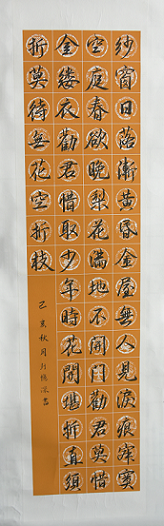 紗窗日落漸黃昏金屋無人見淚痕寂寞
空庭春欲晚梨花滿地不開門勸君莫惜
金縷衣勸君惜取少年時花開堪折直須
折莫待無花空折枝
己亥秋月